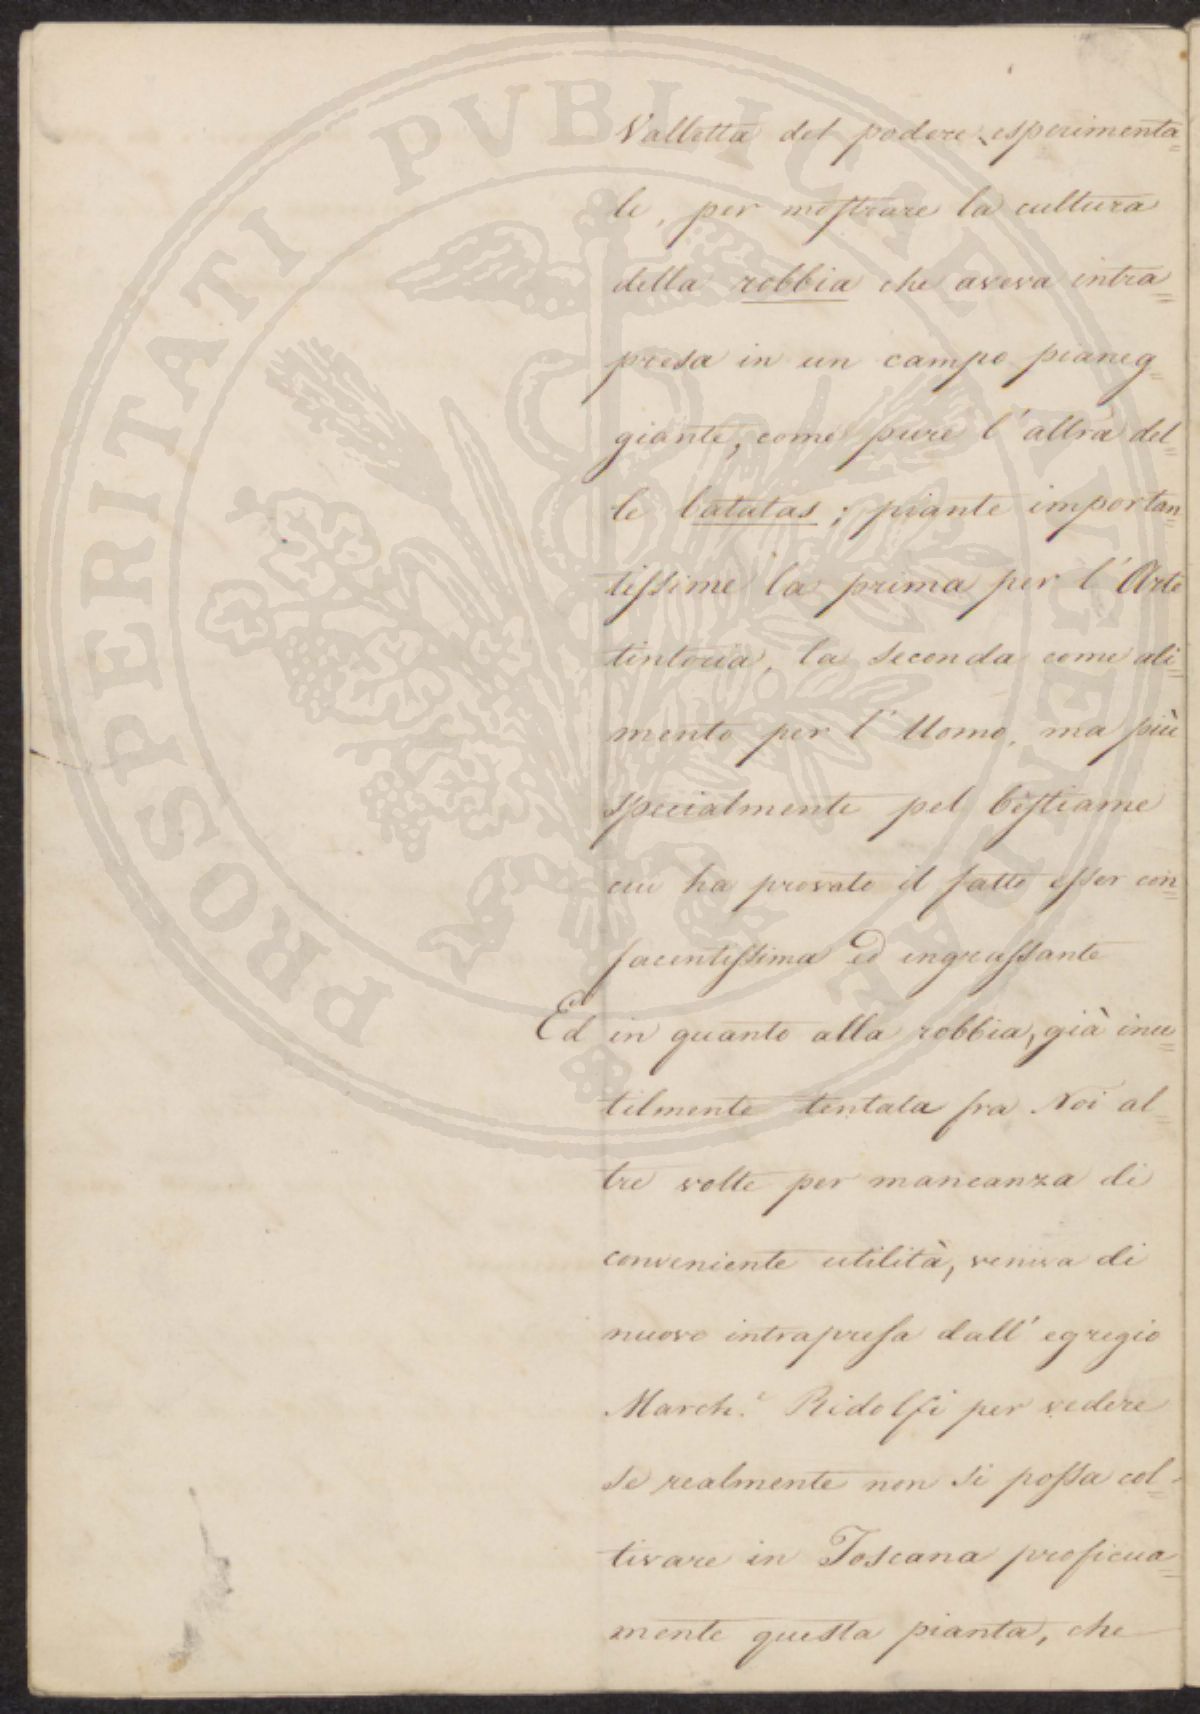 Valletta del podere esperimenta=
le, per mostrare la cultura
della robbia che aveva intra=
presa in un campo pianeg=
giante, come pure l'altra del=
le batatas; piante importan=
tissime la prima per l'Arte
tintoria, la seconda come ali=
mento per l'Uomo, ma più
specialmente pel bestiame
cui ha provato il fatto esser con=
facentissima ed ingrassante
Ed in quanto alla robbia, già inu=
tilmente tentata fra Noi al=
tre volte per mancanza di
conveniente utilità, veniva di
nuovo intrapresa dall'egregio
March.e Ridolfi per vedere
se realmente non si possa col=
tivare in Toscana proficua=
mente questa pianta, che
PROSPERITATI PVBLICAE AVGENDAE